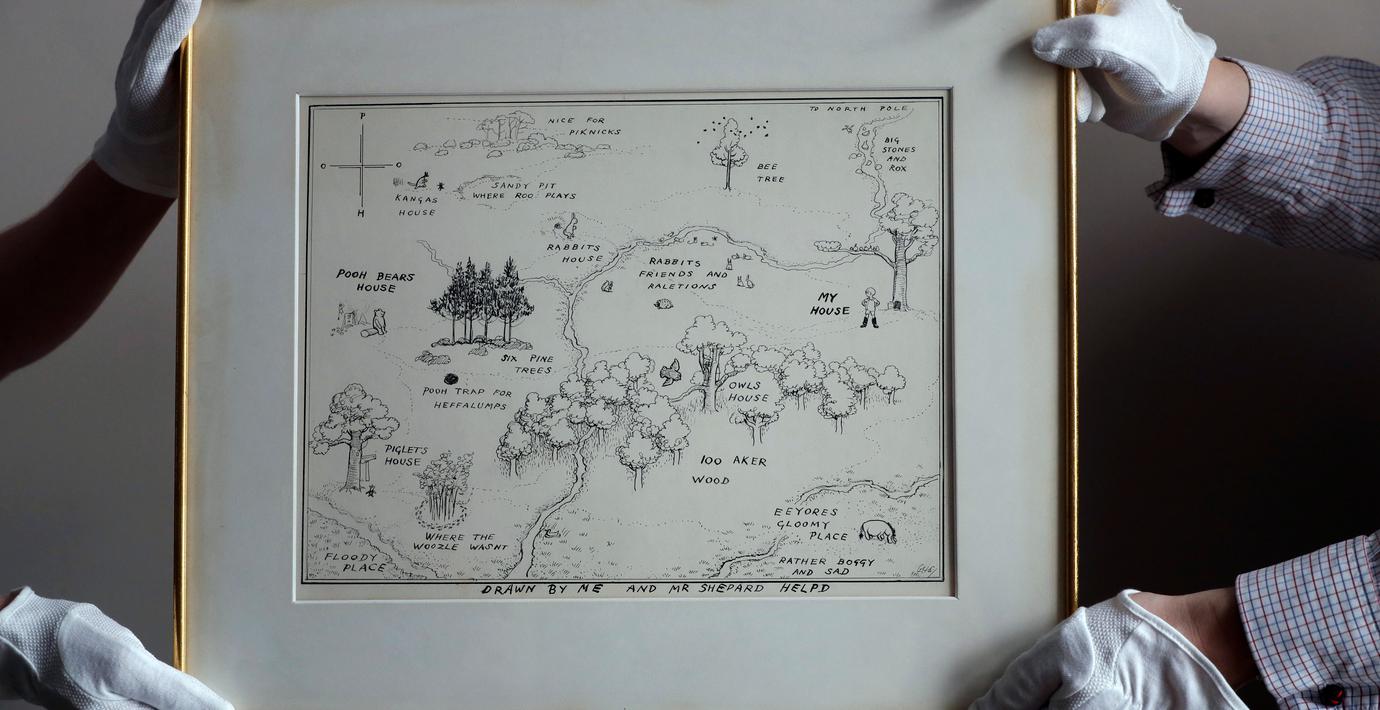 TO NORTH POLE
P
O
O
H
NICE FOR
PIKNICKS
BIG
STONES
AND
ROX
BEE
TREE
KANGAS
HOUSE
SANDY PIT
WHERE ROO PLAYS
RABBITS
HOUSE
RABBITS
FRIENDS AND
RALETIONS
POOH BEARS
HOUSE
MY
HOUSE
SIX PINE
TREES
POOH TRAP FOR
HEFFALUMPS
OWLS
HOUSE
PIGLETS
HOUSE
100 AKER
WOOD
WHERE THE
WOOZLE WASNT
FLOODY
PLACE
EEYORES
GLOOMY
PLACE
RATHER BOGGY
AND SAD
DRAWN BY ME AND MR SHEPARD HELPD